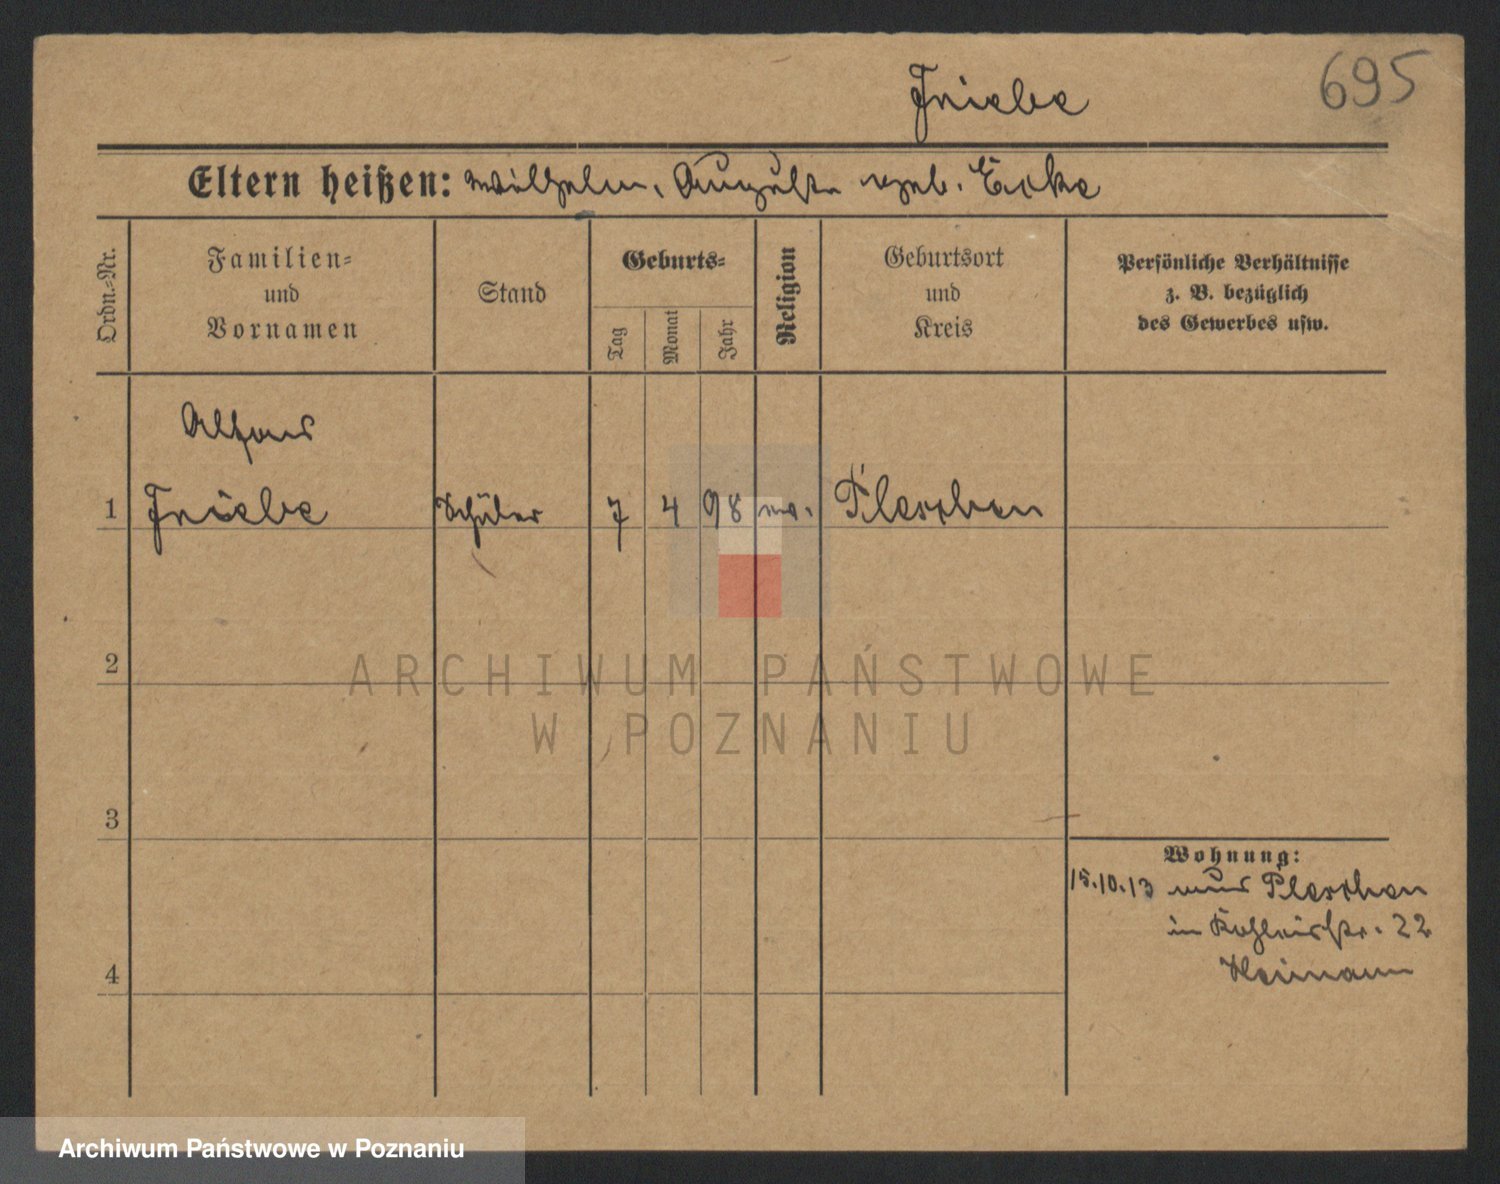 Friebe
695
Eltern heißen: Wilhelm, Auguste geb. Ecke
Ordn.-Nr.
Familien-
und
Vornamen
Stand
Geburts-
Tag
Monat
Jahr
Religion
Geburtsort
und
Kreis
Persönliche Verhältnisse
z. B. bezüglich
des Gewerbes usw.
Alfons
1 Friebe Schüler 7 4 98 Pleschen
2
ARCHIWUM PAŃSTWOWE
W POZNANIU
3
Wohnung:
15.10.13 aus Pleschen
in 22
4
Archiwum Państwowe w Poznaniu